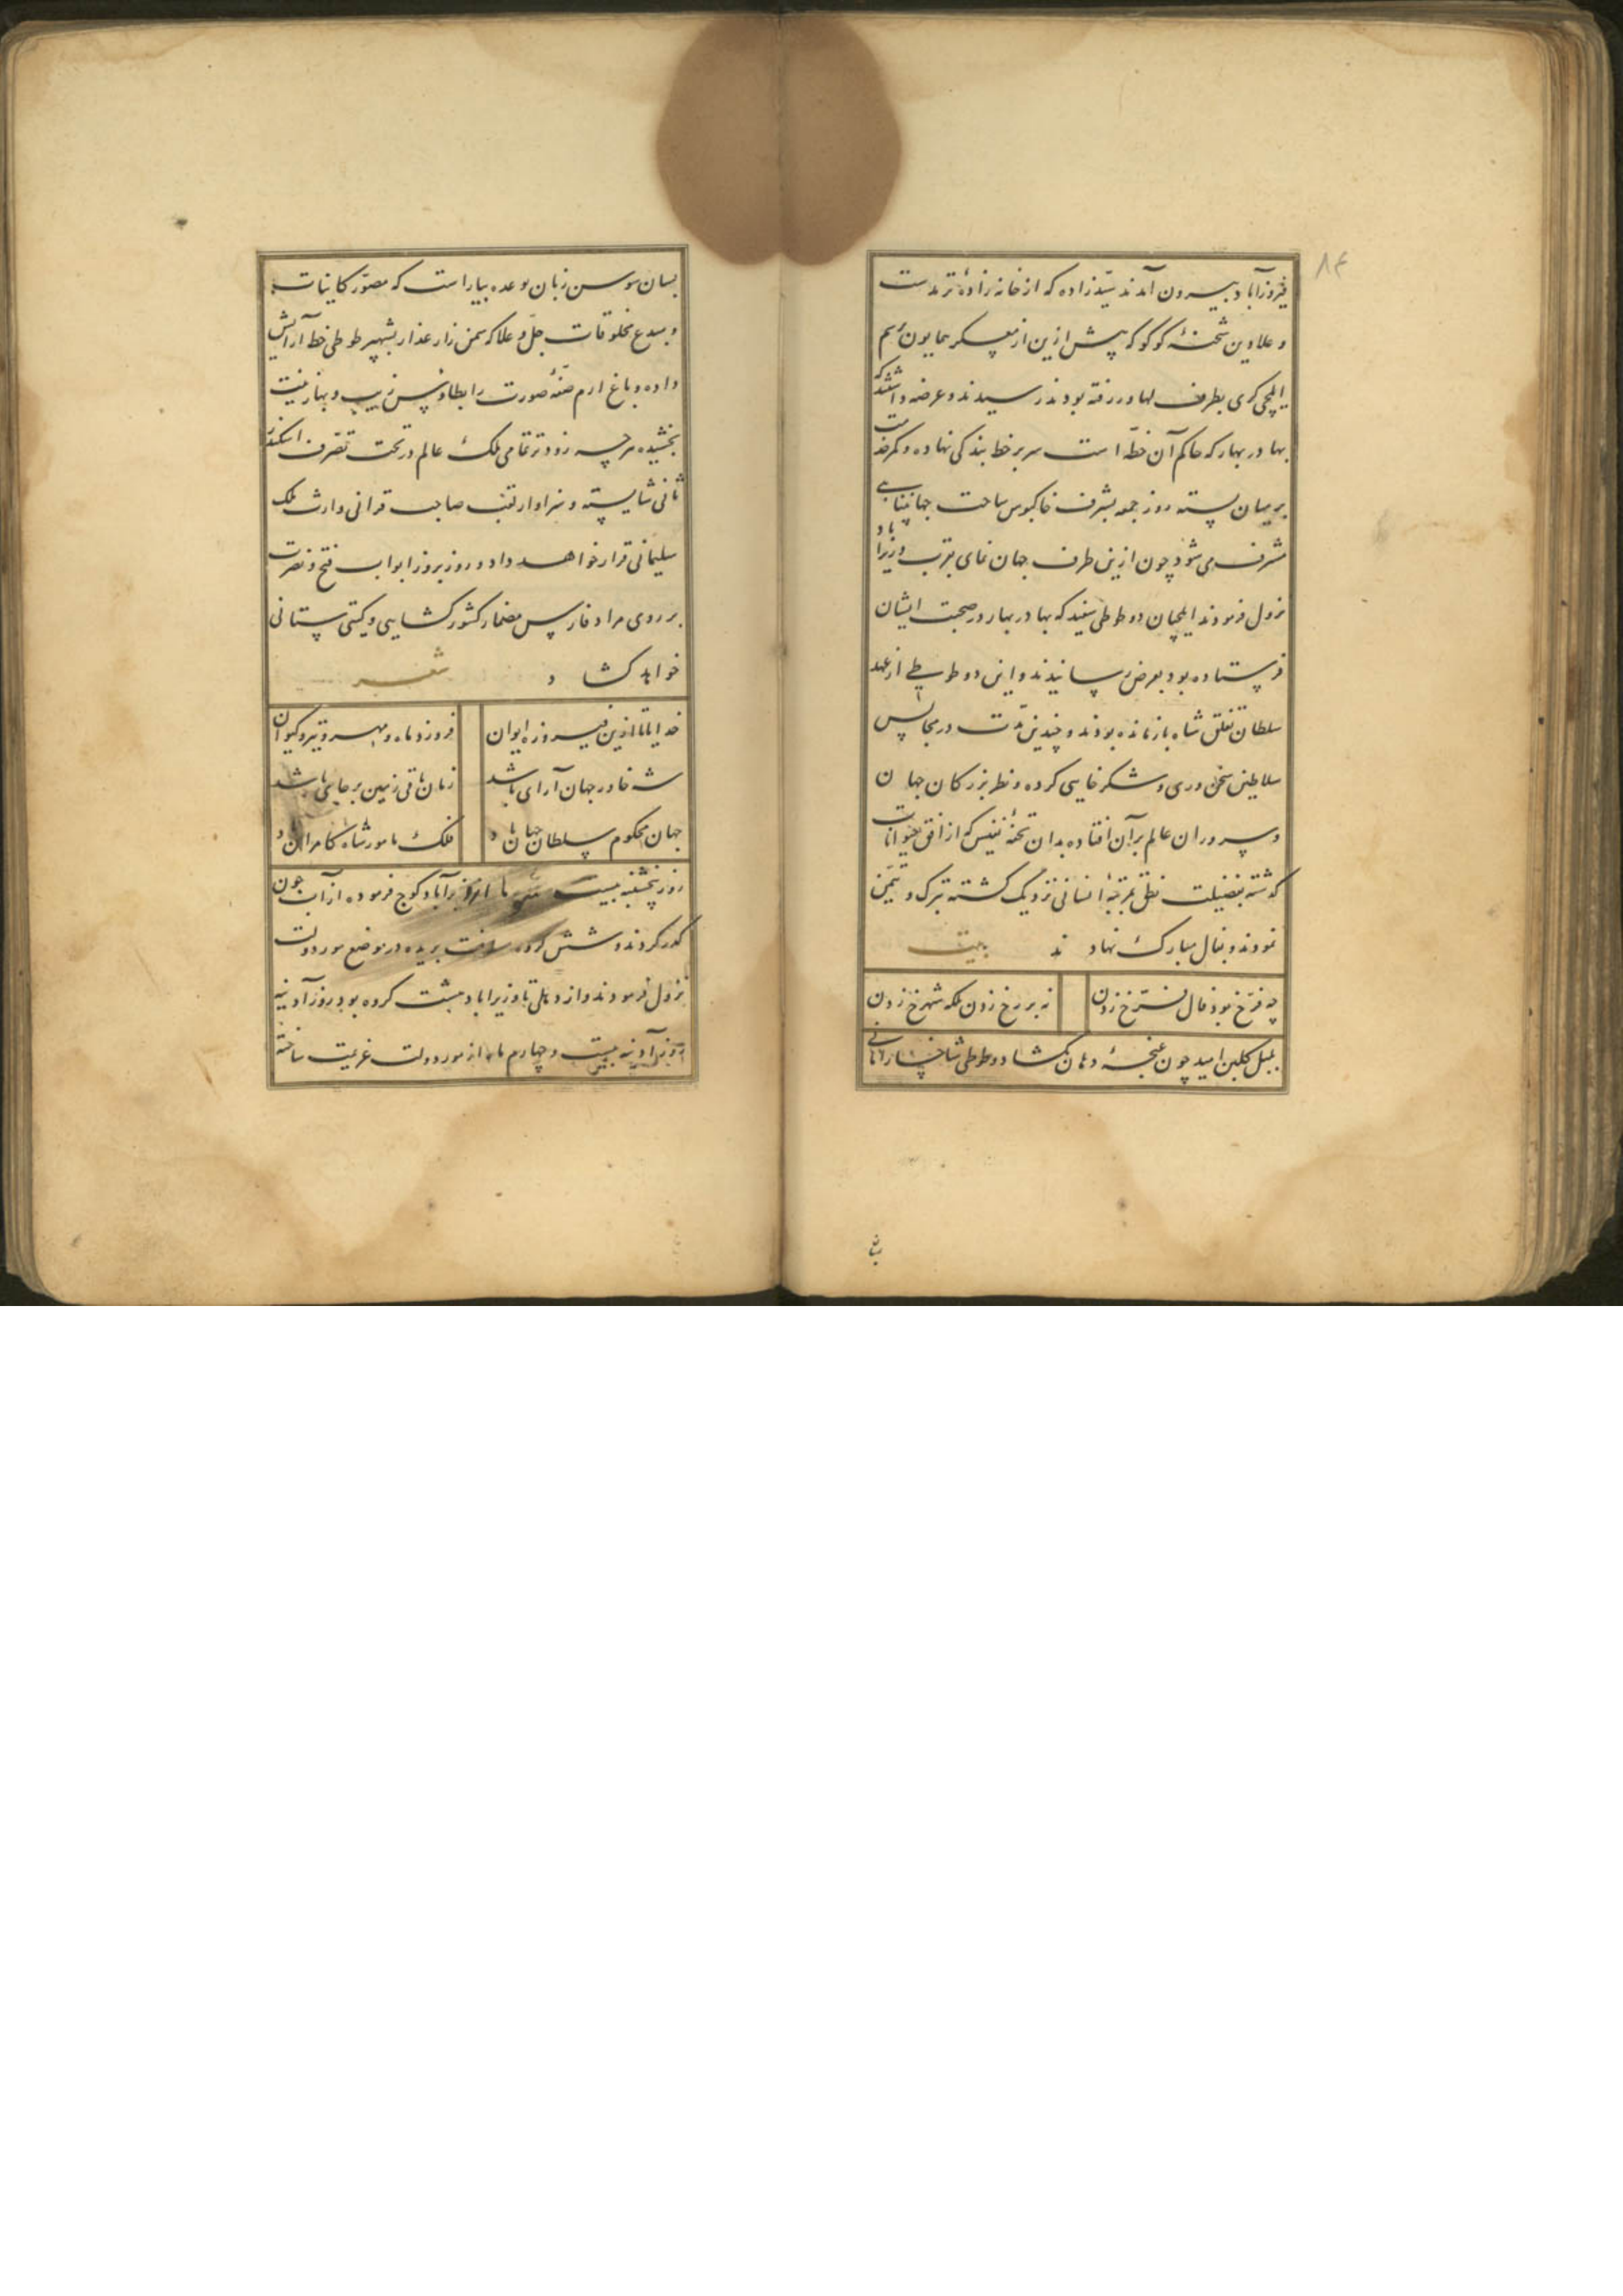 ۸۴
فیروزآباد بیرون آمدند سیدزاده که از خانه زادهٔ ترمدست
و علاوین شحنهٔ کوکو که پیش ازین از معسکر همایون برسم
ایلچی کری بطرف لهاور رفته بودند رسیدند و عرضه داشتند که
بهادر بهار که حاکم آن خطّه است سر بر خط بندکی نهاده و کمر خدمت
بر میان بسته روز جمعه بشرف خاکبوس ساحت جهانپناهی
مشرف می شود چون ازین طرف جهان نمای بقرب وزیراباد
نزول فرمودند ایلچیان دو طوطی سفید که بهادر بهار در صحبت ایشان
فرستاده بود بعرض رسانیدند و این دو طوطی از عهد
سلطان تغلق شاه بازمانده بودند و چندین مدّت در مجالس
سلاطین سخن وری و شکر خایی کرده و نظر بزرکان جهان
و سروران عالم بر آن افتاده بدان تحفهٔ نفیس که از افق حیوانات
کذشته بفضیلت نطق بمرتبهٔ انسانی نزدیک کشته تبرک و تیمّن
نمودند و بفال مبارک نهادند بیت
چه فرّخ بود فال فرّخ زدن نه بر رخ زدن بلکه شهرخ زدن
بلبل کلبن امید چون غنچهٔ دهان بکشاد و طوطی شاخسار امانی
بسان
بسان سوسن زبان بوعده بیاراست که مصوّر کاینات
و مبدع مخلوقات جلّ و علا که سمن زار عذار بشهپر طوطی خط آرایش
داده و باغ ارم صفّهٔ صورت را بطاوس زیب و بهار زینت
بخشیده هر چه زودتر تمامی ملک عالم در تحت تصرف اسکندر
ثانی شایسته و سزاوار لقب صاحب قرانی وارث ملک
سلیمانی قرار خواهد داد و روز بروز ابواب فتح و نصرت
بر روی مراد فارس مضمار کشورکشایی و کیتی ستانی
خواهد کشاد شعر
خدایا تا ازین فیروزه ایوان فروزد ماه و مهر و تیر و کیوان
شه خاور جهان آرای باشد زمان باقی زمین بر جای باشد
جهان محکوم سلطان جهان باد فلک مامور شاه کامران باد
روز پنجشنبه بیست ماه از فیروزآباد کوچ فرموده از آب جون
کذر کردند و شش کروه مسافت بریده در موضع مودولت
نزول فرمودند و از دهلی تا وزیراباد هشت کروه بود روز آدینه
روز آدینه بیست و چهارم ماه از مودولت عزیمت ساخته